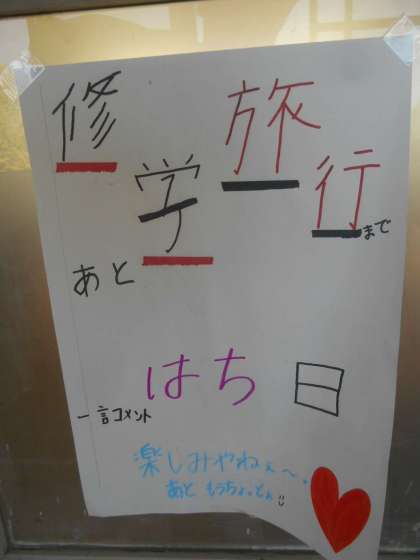 修学旅行まで
あと
はち日
一言コメント
楽しみやねぇ〜。
あともうちょっとぉ